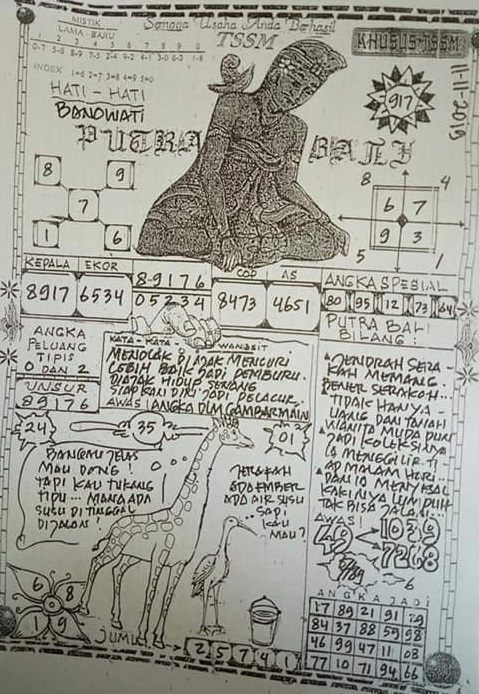 Semoga Usaha Anda Berhasil
TSSM
KHUSUS TSSM
MISTIK
LAMA - BARU
1 2 3 4 5 6 7 8 9 0
INDEX 1=6 2=7 3=8 4=9 5=0
HATI - HATI
BANOWATI
PUTRA BALI
917
11-11-2015
8 9
7
1 6
8 4
6 7
9 3
5 1
KEPALA EKOR
8917 6534
8-9 1 7 6
0 5 2 3 4
COP AS
8473 4651
ANGKA SPESIAL
80 95 12 73 64
ANGKA
PELUANG
TIPIS
0 DAN 2
UNSUR
89176
KATA - KATA - WANGSIT
MENOLAK DIAJAK MENCURI
LEBIH BAIK JADI PEMBURU.
DIAJAK HIDUP SENANG
SIAPKAN DIRI JADI PELACUR.
AWAS ANGKA DLM GAMBAR MAIN
PUTRA BALI
BILANG :
JENDRAH SERA -
KAH MEMANG.
BENER SERAKAH..
TIDAK HANYA -
UANG DAN TANAH
WANITA MUDA PUN
JADI KOLEKSINYA
IA MENGGILIR TI -
AP MALAM HARI..
KAKINYA LUMPUH
TAK BISA JALAN..
AWAS!
49 1039
7268
6
24
35
01
BANGMU JELAS
MAU DONG !
TAPI KAU TUKANG
TIPU... MANA ADA
SUSU DI TINGGAL
DI JALAN !
JERAKAH
ADA EMBER
ADA AIR SUSU
SAPI
KAU
MAU ?
6 8
1 9
JUMLAH
2 5 7 4 1
ANGKA JADI
17 89 21 91 29
84 37 88 59 98
46 99 47 11 08
77 10 71 94 66